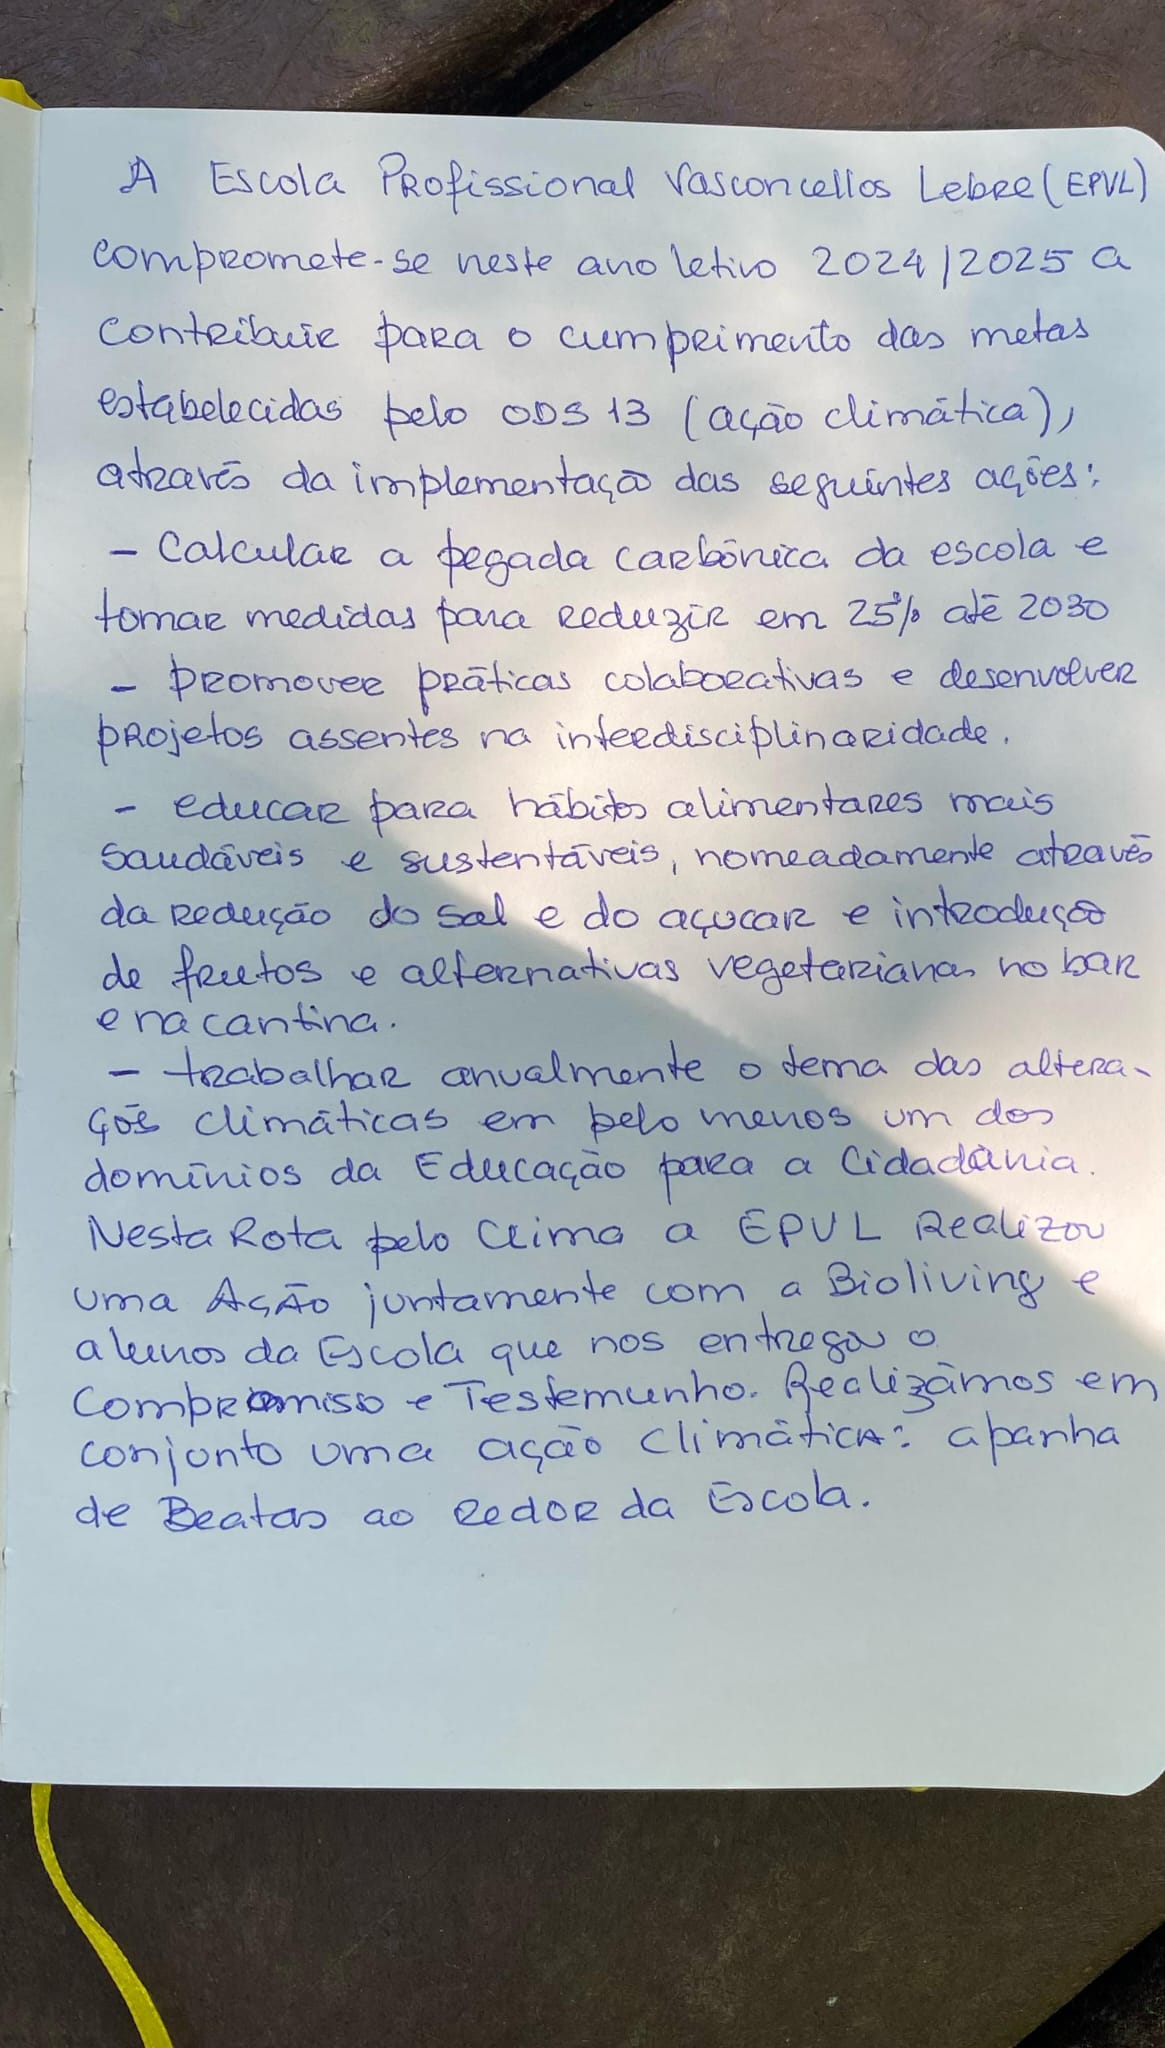 A Escola Profissional Vasconcellos Lebre (EPVL)
compromete-se neste ano letivo 2024/2025 a
contribuir para o cumprimento das metas
estabelecidas pelo ODS 13 (ação climática),
através da implementação das seguintes ações:
- Calcular a pegada carbónica da escola e
tomar medidas para reduzir em 25% até 2030
- promover práticas colaborativas e desenvolver
projetos assentes na interdisciplinaridade.
- educar para hábitos alimentares mais
saudáveis e sustentáveis, nomeadamente através
da redução do sal e do açucar e introdução
de frutos e alternativas vegetarianas no bar
e na cantina.
- trabalhar anualmente o tema das altera-
ções climáticas em pelo menos um dos
domínios da Educação para a Cidadania.
Nesta Rota pelo Clima a EPVL Realizou
uma Ação juntamente com a Bioliving e
alunos da Escola que nos entregou o
Compromisso e Testemunho. Realizámos em
conjunto uma ação climática: apanha
de Beatas ao redor da Escola.